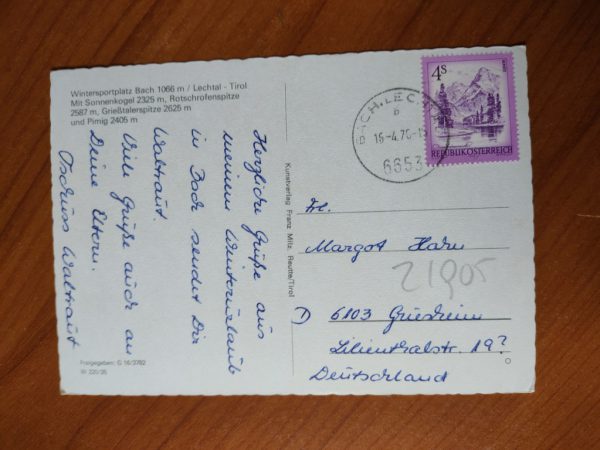 Wintersportplatz Bach 1066 m / Lechtal - Tirol
Mit Sonnenkogel 2325 m, Rotschrofenspitze
2587 m, Grießtalerspitze 2625 m
und Pimig 2405 m
Herzliche Grüße aus
meinem Winterurlaub
in Bach sendet Dir
Waltraut.
Viele Grüße auch an
Deine Eltern.
Tschüss Waltraut
Freigegeben: G 16/3762
W 220/35
Kunstverlag Franz Milz, Reutte/Tirol
BACH, LECH
b
15-4.76-15
6653
4S
REPUBLIK ÖSTERREICH
Frl.
Margot Hahn
21905
D 6103 Griesheim
Lilienthalstr. 19?
Deutschland